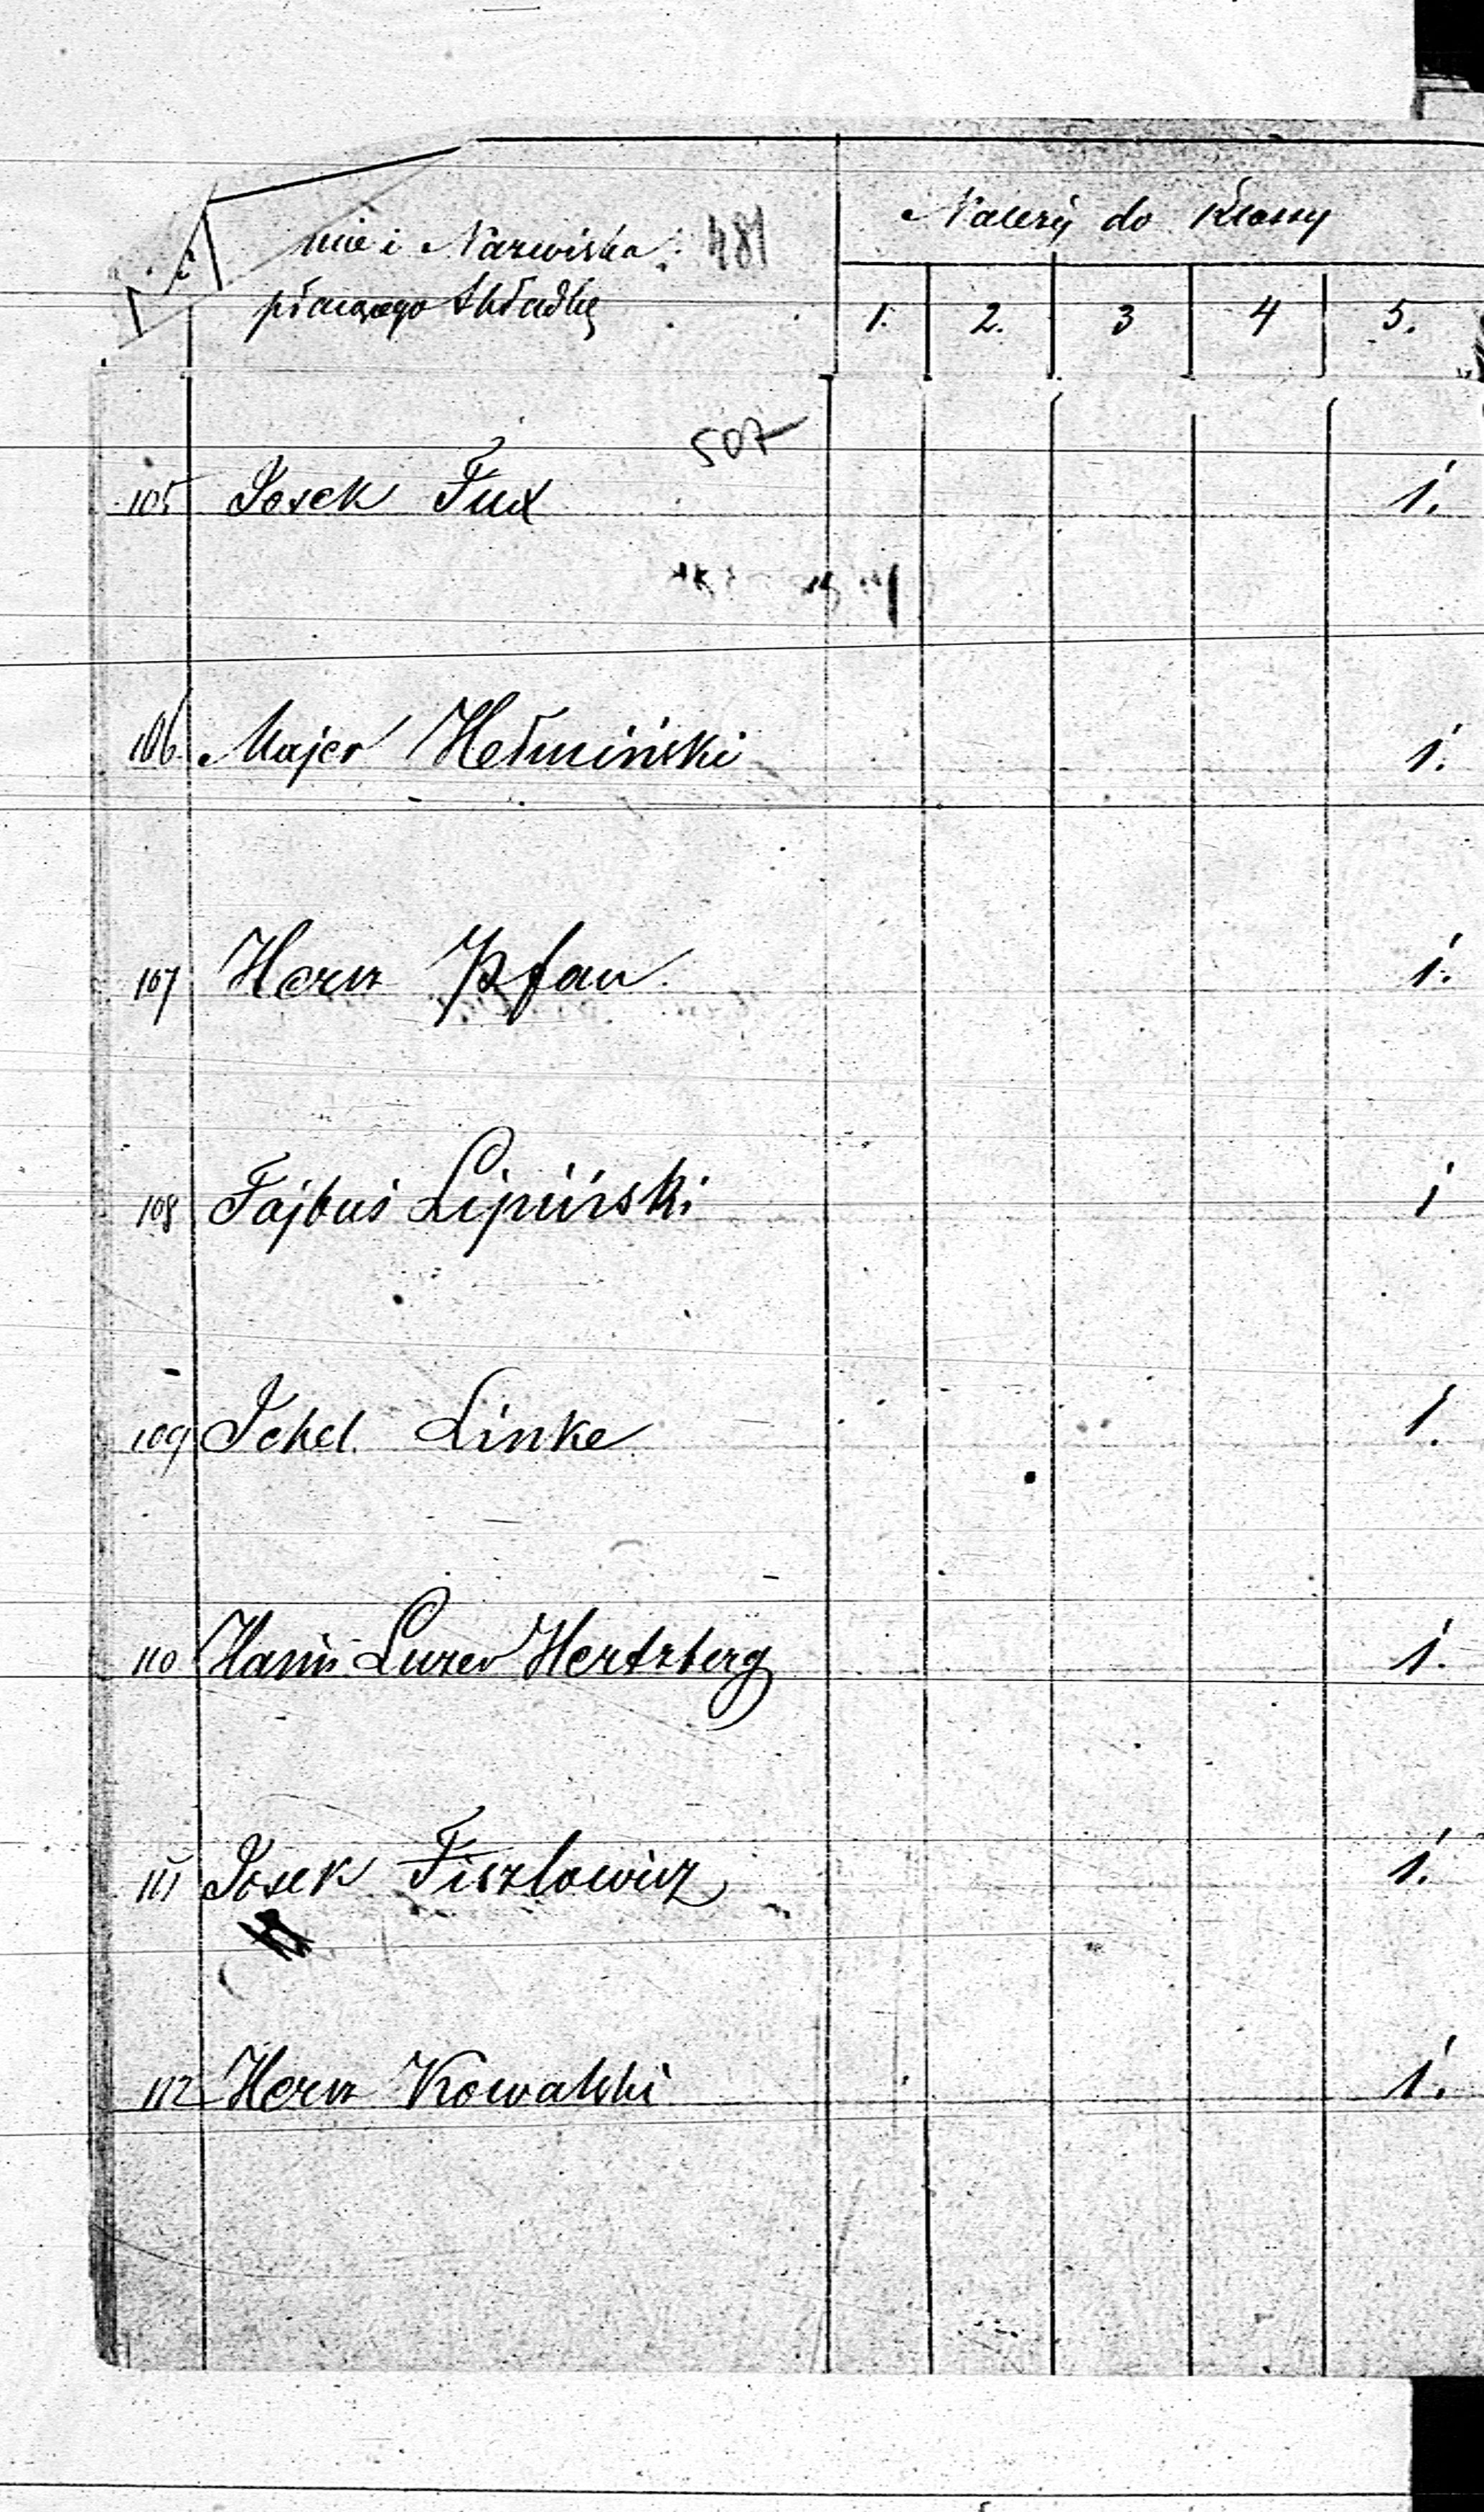 mie i Nazwiska 481
płacącego składkę
Należy do Klassy
1. 2. 3 4 5.
507
105 Josek Fux 1.
106 Majer Hełmiński 1.
107 Hersz Pfau 1.
108 Fajbuś Lipiński 1
109 Ichel Linke 1.
110 Lurer Hertzberg 1.
111 Josek Fiszlowicz 1.
112 Hersz Kowalski 1.